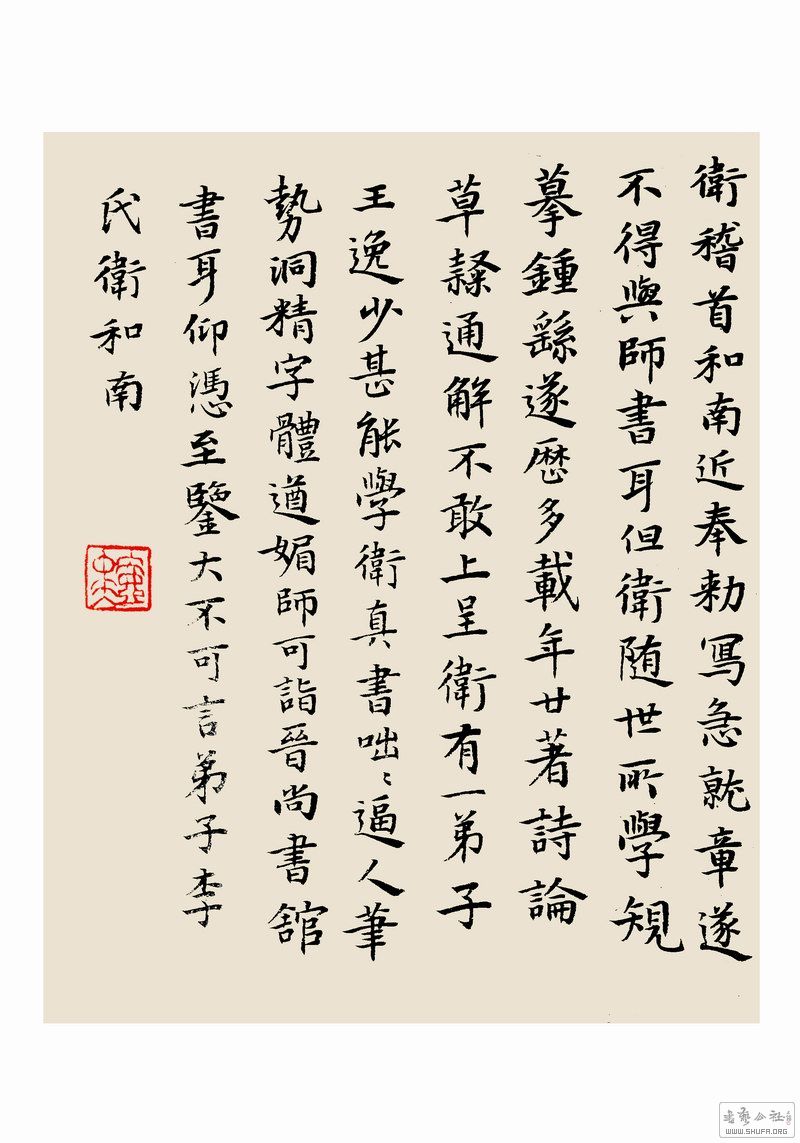 衛稽首和南近奉勑寫急就章遂
不得與師書耳但衛随世所學規
摹鍾繇遂歷多載年廿著詩論
草隸通解不敢上呈衛有一弟子
王逸少甚能學衛真書咄〻逼人筆
勢洞精字體遒媚師可詣晉尚書舘
書耳仰憑至鑒大不可言弟子李
氏衛和南
書藝公社
WWW.SHUFA.ORG